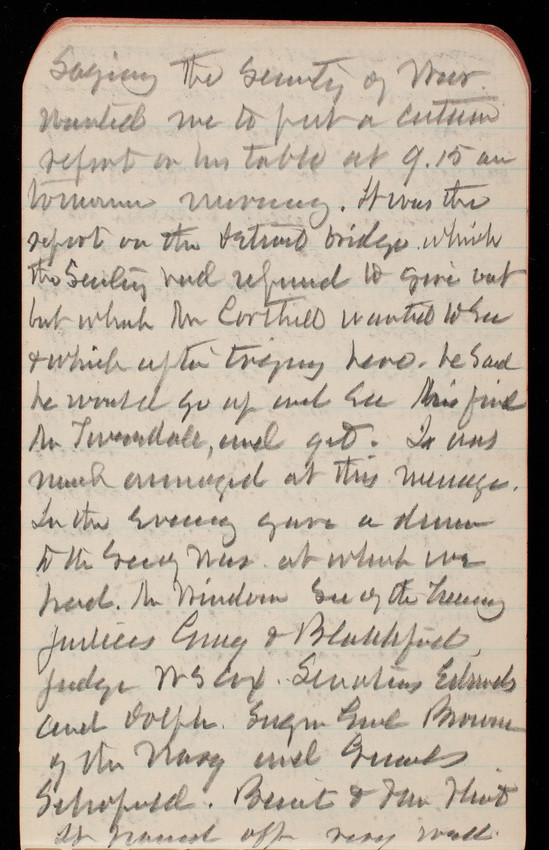 Saying the Secretary of War
wanted me to put a certain
report on his table at 9.15 am
tomorrow morning. It was the
report on the Detroit bridge which
the Secretary had refused to give out
but which Mr Corthell wanted to see
& which after trying here. he said
he would go up and see his friend
Mr, and get. I was
much annoyed at this message.
In the evening gave a dinner
to the Secy War at which we
had. Mr Windom Sec of the Treasury
Justices Gray & Blatchford,
Judge W S Cox. Senators Edmunds
and Dolph. Surgn Genl Browne
of the Navy and General
Schofield. Benét & Flint
It passed off very well.